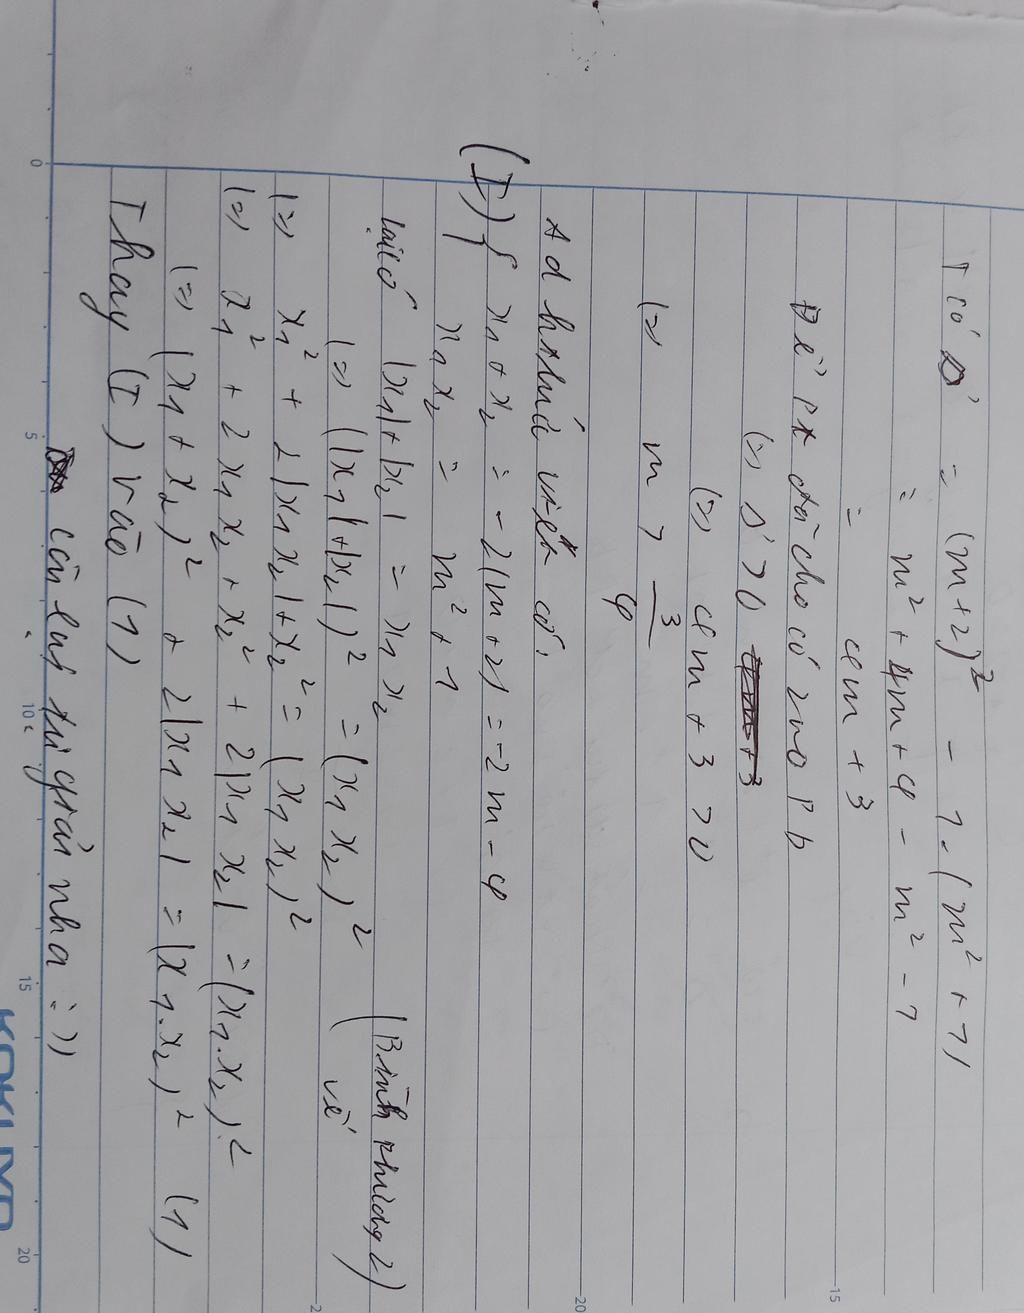 T có Δ' = (m+2)² - 1.(m²+1)
= m² + 4m + 4 - m² - 1
= 4m + 3
Để pt đã cho có 2 no pb
(=) Δ' > 0
(=) 4m + 3 > 0
(=) m > 3/4
Ad ht thức viét có:
(I) { x1 + x2 = -2(m+2) = -2m-4
x1 x2 = m² + 1
lại có |x1| + |x2| = x1 x2
(=) (|x1|+|x2|)² = (x1 x2)² (Bình phương 2 vế)
(=) x1² + 2|x1 x2| + x2² = (x1 x2)²
(=) x1² + 2x1 x2 + x2² + 2|x1 x2| = (x1.x2)²
(=) (x1 + x2)² + 2|x1 x2| = (x1.x2)² (1)
Thay (I) vào (1)
còn lại tự giải nha :))
0 5 10 15 20
15 20